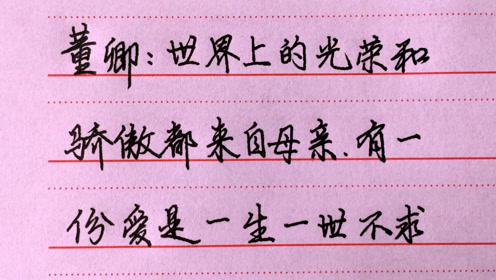 董卿:世界上的光荣和
骄傲都来自母亲.有一
份爱是一生一世不求